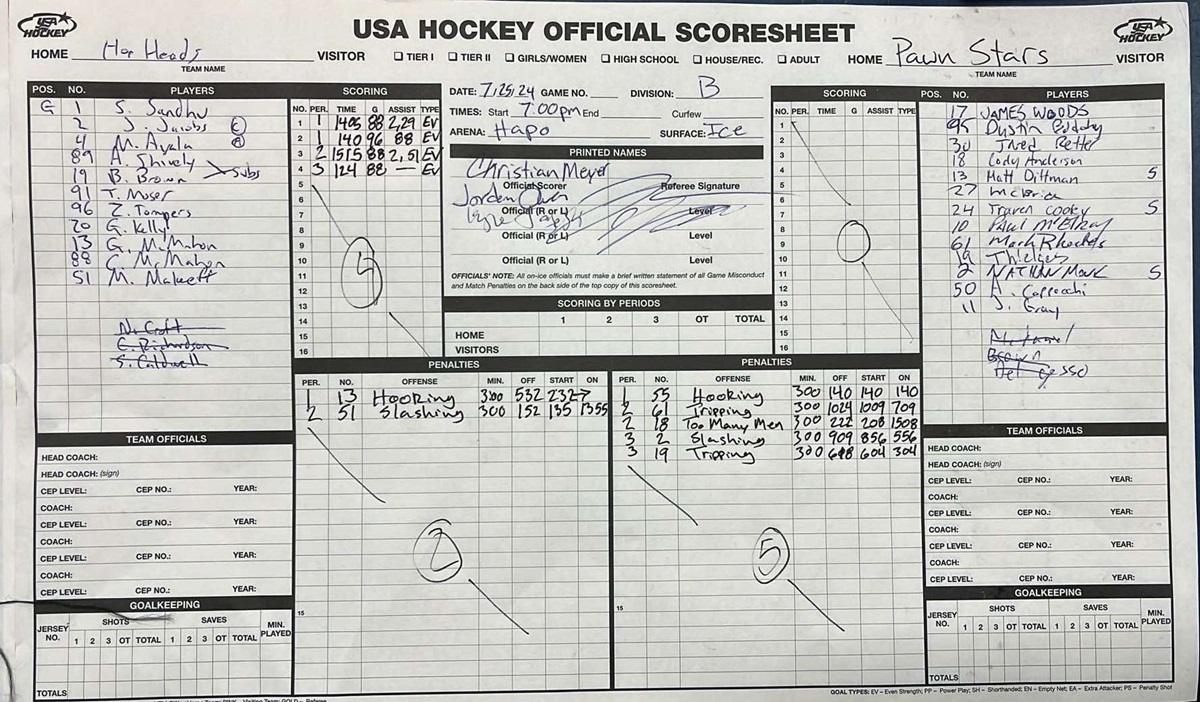 USA HOCKEY
USA HOCKEY OFFICIAL SCORESHEET
USA HOCKEY
HOME Hop Heads VISITOR ☐ TIER I ☐ TIER II ☐ GIRLS/WOMEN ☐ HIGH SCHOOL ☐ HOUSE/REC. ☐ ADULT HOME Pawn Stars VISITOR
TEAM NAME
TEAM NAME
POS. NO. PLAYERS
G 1 S. Sandhu
2 J. Jacobs C
4 M. Ayala A
89 A. Shively
19 B. Brown > Subs
91 T. Moser
96 Z. Tompers
20 G. Kelly
13 G. McMahon
88 C. McMahon
51 M. Makeeff
N. Croft
C. Richardson
S. Caldwell
SCORING
NO. PER. TIME G ASSIST TYPE
1 1 1405 88 2,29 EV
2 1 140 96 88 EV
3 2 1515 88 2,51 EV
4 3 124 88 — EV
5
6
7
8
9
10
11
12
13
14
15
16
4
DATE: 7/25/24 GAME NO. DIVISION: B
TIMES: Start 7:00pm End Curfew
ARENA: Hapo SURFACE: Ice
PRINTED NAMES
Christian Meyer
Official Scorer Referee Signature
Jorden
Official (R or L) Level
Official (R or L) Level
Official (R or L) Level
OFFICIALS' NOTE: All on-ice officials must make a brief written statement of all Game Misconduct
and Match Penalties on the back side of the top copy of this scoresheet.
SCORING BY PERIODS
1 2 3 OT TOTAL
HOME
VISITORS
SCORING
NO. PER. TIME G ASSIST TYPE
1
2
3
4
5
6
7
8
9
10
11
12
13
14
15
16
0
POS. NO. PLAYERS
17 JAMES WOODS
95 Dustin
30 Jhred Retter
18 Cody Anderson
13 Matt Dittman S
27 McBride
24 Traven Cooky S
10 Paul McElroy
61 Mark Rhoads
19 Thielges
2 NATHAN Monk S
50 A. Cappocchi
11 J. Gray
Brown
Del
PENALTIES
PER. NO. OFFENSE MIN. OFF START ON
1 13 Hooking 300 532 232 7
2 51 Slashing 300 152 135 1355
15
2
PENALTIES
PER. NO. OFFENSE MIN. OFF START ON
1 55 Hooking 300 140 140 140
2 61 Tripping 300 1024 1009 709
2 18 Too Many Men 300 222 208 1508
3 2 Slashing 300 909 856 556
3 19 Tripping 300 618 604 304
15
5
TEAM OFFICIALS
HEAD COACH:
HEAD COACH: (sign)
CEP LEVEL: CEP NO.: YEAR:
COACH:
CEP LEVEL: CEP NO.: YEAR:
COACH:
CEP LEVEL: CEP NO.: YEAR:
COACH:
CEP LEVEL: CEP NO.: YEAR:
GOALKEEPING
JERSEY NO. SHOTS SAVES MIN. PLAYED
1 2 3 OT TOTAL 1 2 3 OT TOTAL
TOTALS
TEAM OFFICIALS
HEAD COACH:
HEAD COACH: (sign)
CEP LEVEL: CEP NO.: YEAR:
COACH:
CEP LEVEL: CEP NO.: YEAR:
COACH:
CEP LEVEL: CEP NO.: YEAR:
COACH:
CEP LEVEL: CEP NO.: YEAR:
GOALKEEPING
JERSEY NO. SHOTS SAVES MIN. PLAYED
1 2 3 OT TOTAL 1 2 3 OT TOTAL
TOTALS
GOAL TYPES: EV – Even Strength; PP – Power Play; SH – Shorthanded; EN – Empty Net; EA – Extra Attacker; PS – Penalty Shot